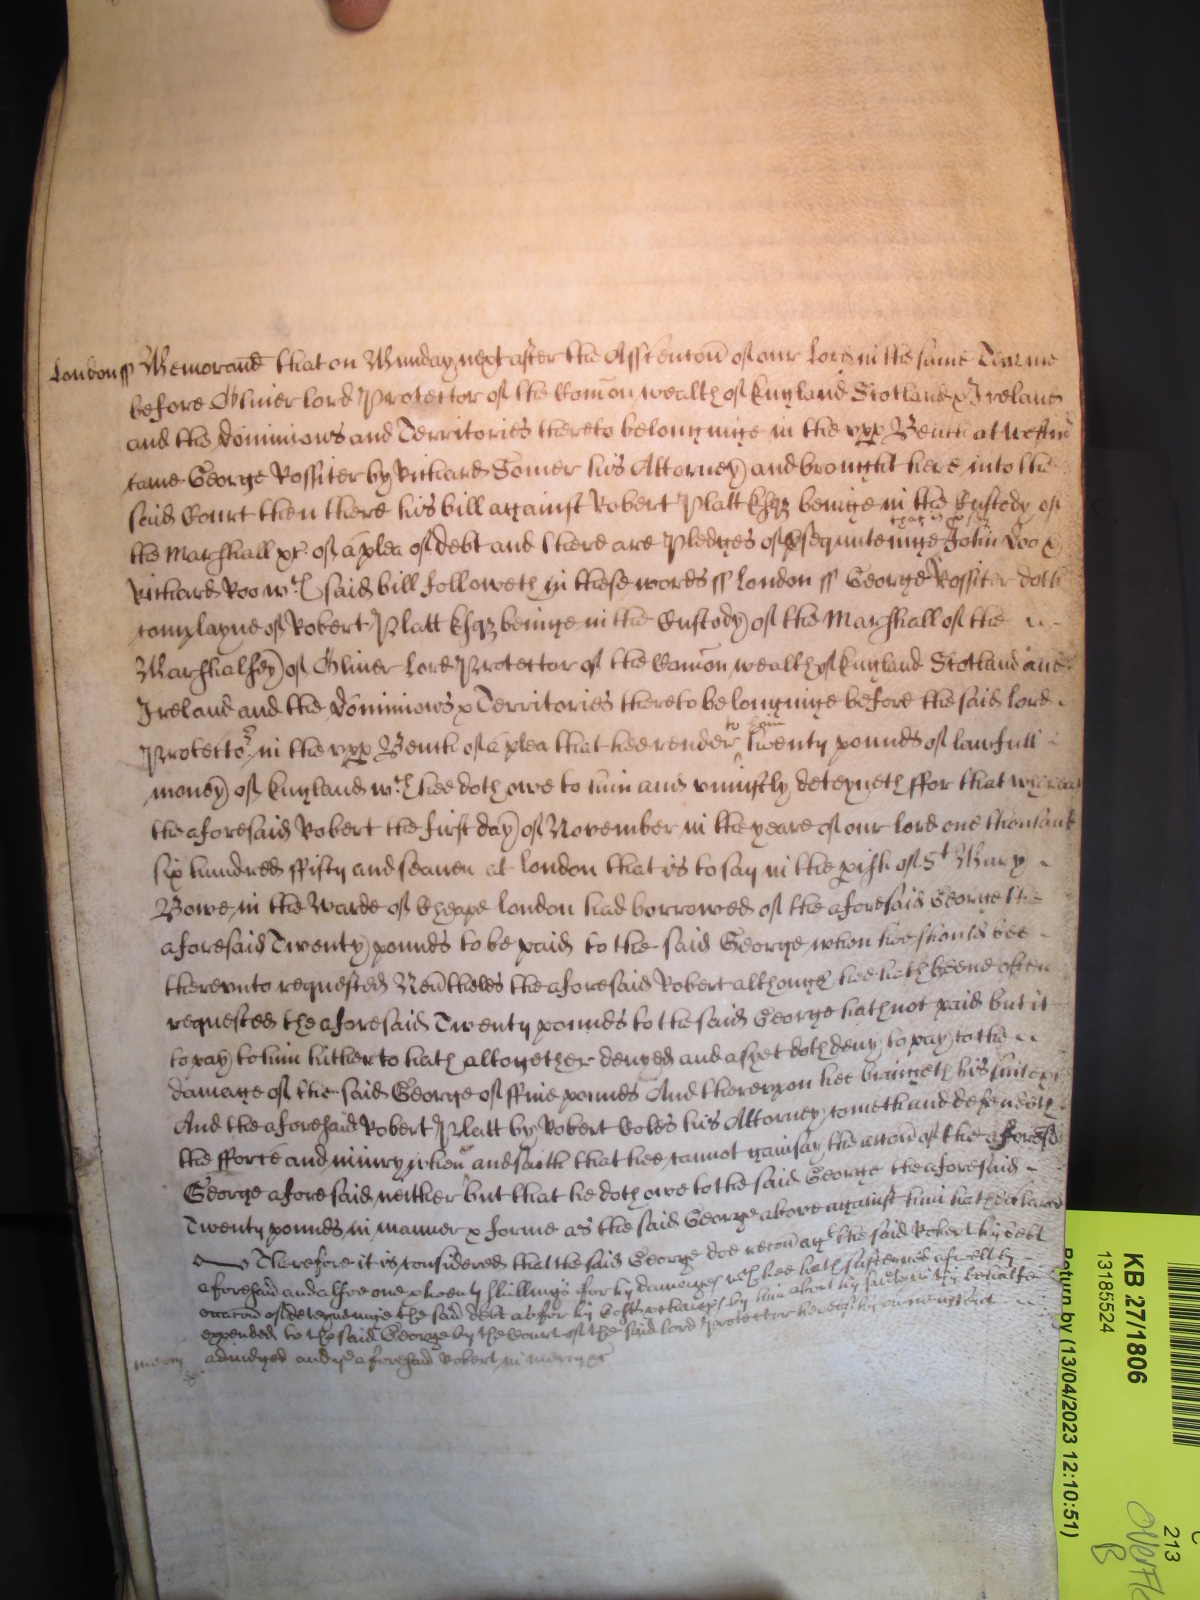 London ss Memorand that on Munday next after the Assention of our Lord in the same Tearme
before Oliver lord Protector of the Comon wealth of England Scotland & Ireland
and the Dominions and Territories thereto belonginge in the upp Bench at Westm
came George Rossiter by Richard Somer his Attorney and brought here into the
said Court then there his bill against Robert Platt Esqz beinge in the Custody of
the Marshall &c of a plea of debt and there are Pledges of John Doo &
Richard Roo wch said bill followeth in these words ss London ss George Rossiter doth
complayne of Robert Platt Esqz beinge in the Custody of the Marshall of the
Marshalsey of Oliver Lord Protector of the Comon wealth of England Scotland and
Ireland and the Dominions & Territories thereto belonginge before the said Lord
Protector in the upp Bench of a plea that hee render to him twenty pounds of lawfull
money of England wch hee doth owe to him and uniustly deteyneth ffor that whereas
the aforesaid Robert the first day of November in the yeare of our lord one thousand
six hundred ffifty and seaven at London that is to say in the pish of St Mary
Bowe in the Warde of Cheape London had borrowed of the aforesaid George the
aforesaid Twenty pounds to be paid to the said George when hee should bee
thereunto requested Nevtheles the aforesaid Robert although hee hath beene often
requested the aforesaid Twenty pounds to the said George hath not paid but it
to pay to him hitherto hath altogether denyed and as yet doth deny to pay to the
damage of the said George of ffive pounds And thereupon hee bringeth his suite &c
And the aforesaid Robert Platt by Robert Coles his Attorney cometh and defendeth
the fforce and iniury when &c and saith that hee cannot gainsay the accon of the aforesd
George aforesaid neither but that he doth owe to the said George the aforesaid
Twenty pounds in manner & forme as the said George above against him hath declared
Therefore it is considered that the said George doe recov agt the said Robert his debt
aforesaid and alsoe one & twenty shillings for his damages wch hee hath susteyned aswell by
occacon of deteyninge the said debt as for his Costs & charges by him about his suite in this behalfe
expended to the said George by the Court of the said lord Protector here of his own assent
adiudged and ye aforesaid Robert in mercy &c
mercy
Return by (13/04/2023 12:10:51)
13185524
KB 27/1806
213
B